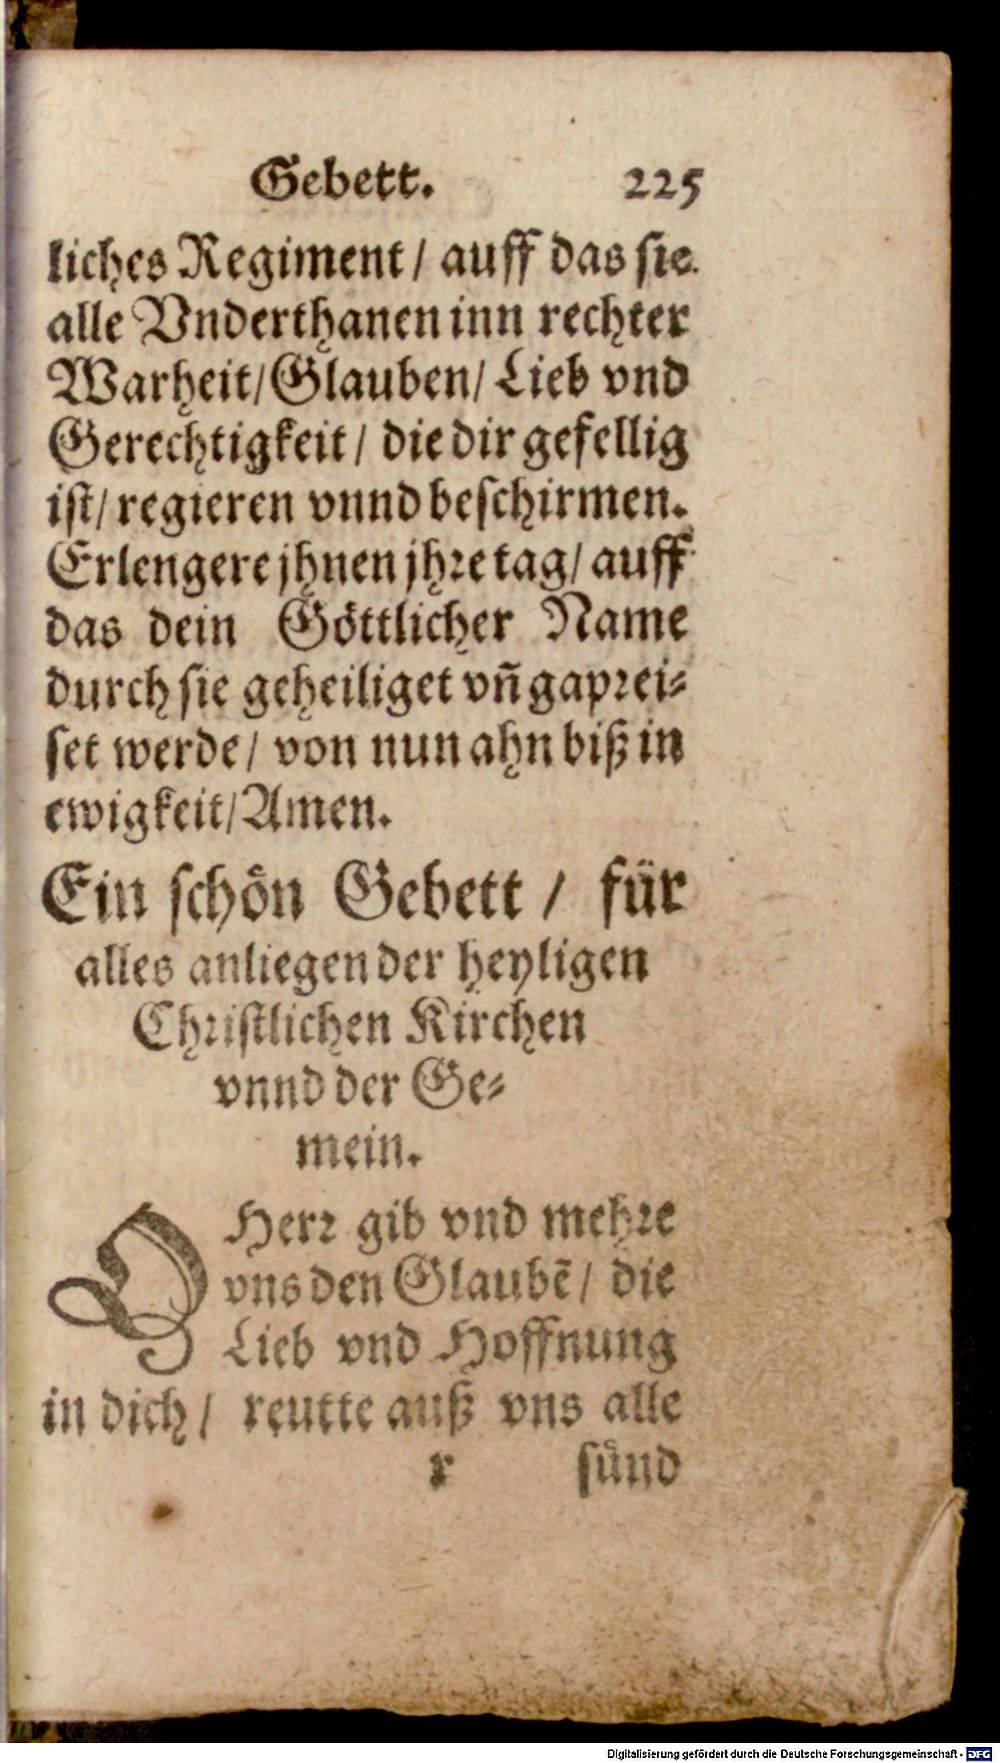 Gebett. 225
liches Regiment / auff das sie
alle Vnderthanen inn rechter
Warheit / Glauben / Lieb vnd
Gerechtigkeit / die dir gefellig
ist / regieren vnnd beschirmen.
Erlengere jhnen jhre tag / auff
das dein Göttlicher Name
durch sie geheiliget vñ gaprei⸗
set werde / von nun ahn biß in
ewigkeit / Amen.
Ein schön Gebett / für
alles anliegen der heyligen
Christlichen Kirchen
vnnd der Ge⸗
mein.
O Herr gib vnd mehre
vns den Glaubẽ / die
Lieb vnd Hoffnung
in dich / reutte auß vns alle
r sünd
Digitalisierung gefördert durch die Deutsche Forschungsgemeinschaft - DFG